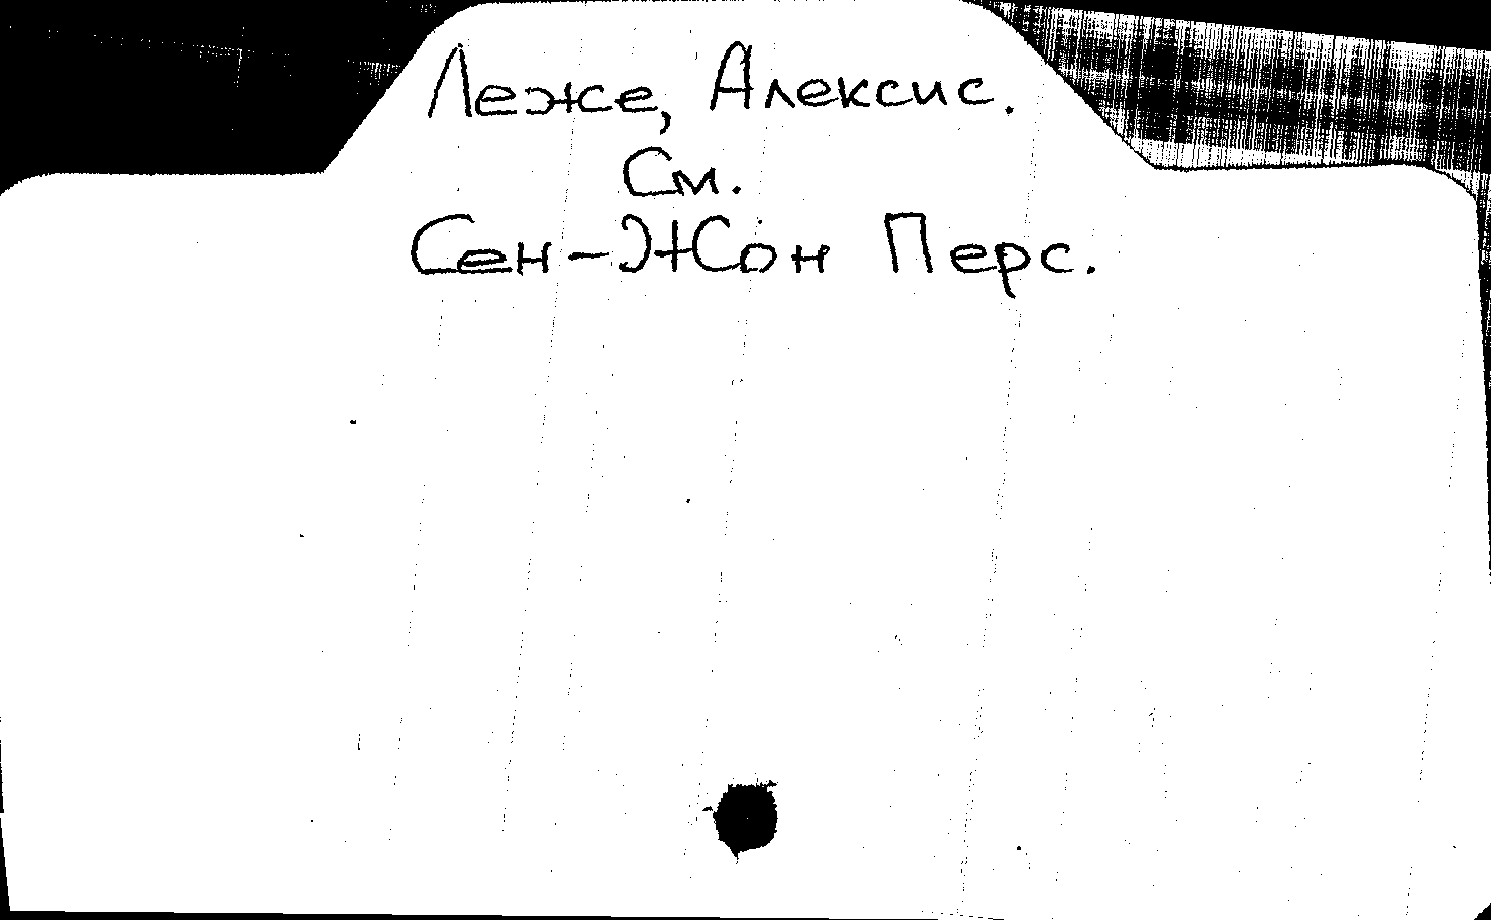 Леже, Алексис.
См.
Сен-Жон Перс.